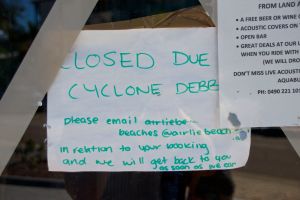 CLOSED DUE
CYCLONE DEBB
please email airlie
beaches@airliebeach
in relation to your booking
and we will get back to you
as soon as we can
FROM LAND A
• A FREE BEER OR WINE
• ACOUSTIC COVERS ON
• OPEN BAR
• GREAT DEALS AT OUR
WHEN YOU RIDE WITH
DON'T MISS LIVE ACOUSTIC
AQUABU
PH: 0490 221 10